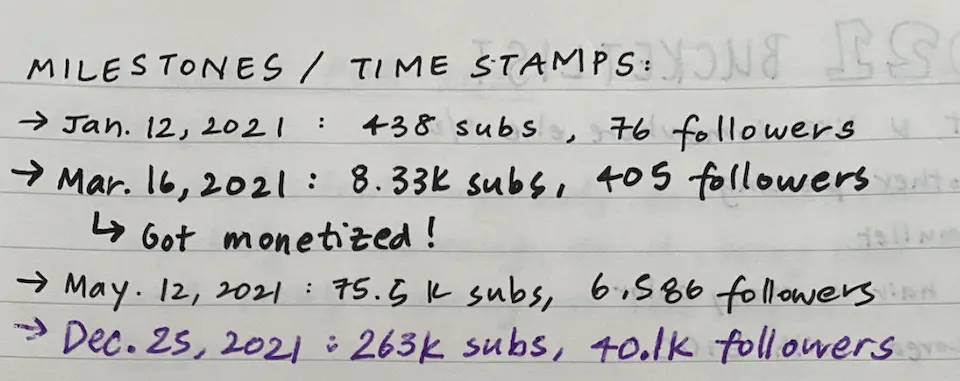 MILESTONES / TIME STAMPS:
→ Jan. 12, 2021 : 438 subs, 76 followers
→ Mar. 16, 2021 : 8.33K subs, 405 followers
↳ Got monetized!
→ May. 12, 2021 : 75.5 K subs, 6,586 followers
→ Dec. 25, 2021 : 263K subs, 40.1K followers